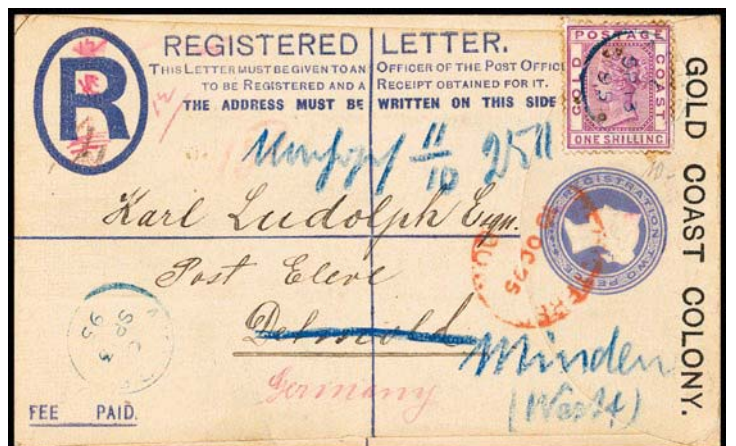 REGISTERED LETTER.
THIS LETTER MUST BE GIVEN TO AN OFFICER OF THE POST OFFIC
TO BE REGISTERED AND A RECEIPT OBTAINED FOR IT.
THE ADDRESS MUST BE WRITTEN ON THIS SIDE
R
POSTAGE
GOLD COAST
ONE SHILLING
GOLD COAST COLONY.
REGISTRATION TWO PENCE
11/10 2511
Karl Ludolph Esqu.
Post Eleve
Detmold
Minden
(Westf)
Germany
OC 95
SP 3
95
FEE PAID.